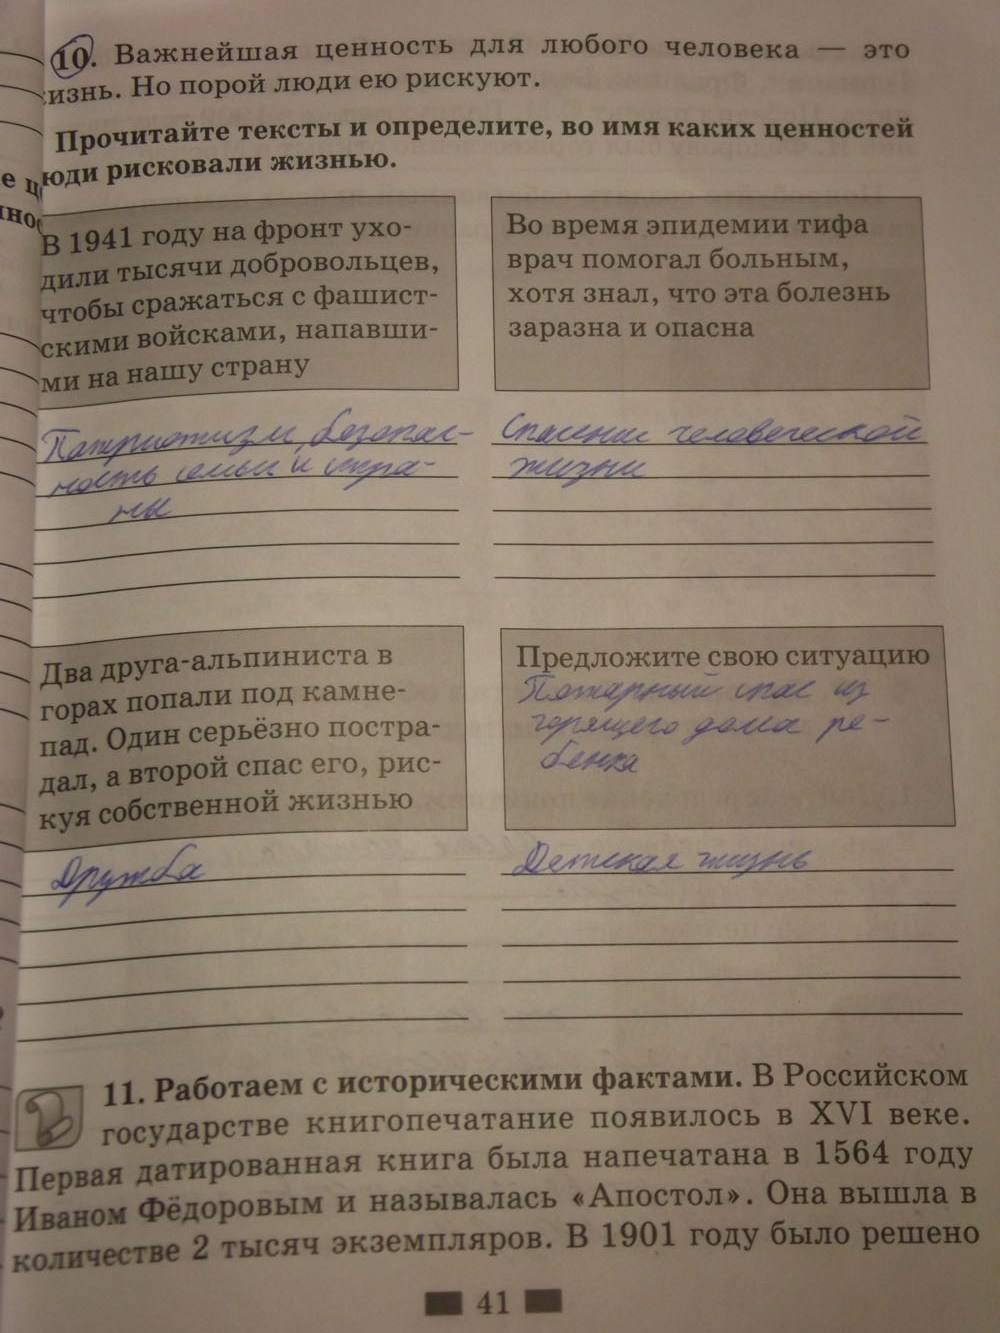 10. Важнейшая ценность для любого человека — это
изнь. Но порой люди ею рискуют.
Прочитайте тексты и определите, во имя каких ценностей
юди рисковали жизнью.
е ц
нос
В 1941 году на фронт ухо-
дили тысячи добровольцев,
чтобы сражаться с фашист-
скими войсками, напавши-
ми на нашу страну
Во время эпидемии тифа
врач помогал больным,
хотя знал, что эта болезнь
заразна и опасна
Патриотизм, безопас-
ность семьи и стра-
ны
Спасение человеческой
жизни
Два друга-альпиниста в
горах попали под камне-
пад. Один серьёзно постра-
дал, а второй спас его, рис-
куя собственной жизнью
Предложите свою ситуацию
Пожарный спас из
горящего дома ре-
бенка
Дружба
Детская жизнь
11. Работаем с историческими фактами. В Российском
государстве книгопечатание появилось в XVI веке.
Первая датированная книга была напечатана в 1564 году
Иваном Фёдоровым и называлась «Апостол». Она вышла в
количестве 2 тысяч экземпляров. В 1901 году было решено
41